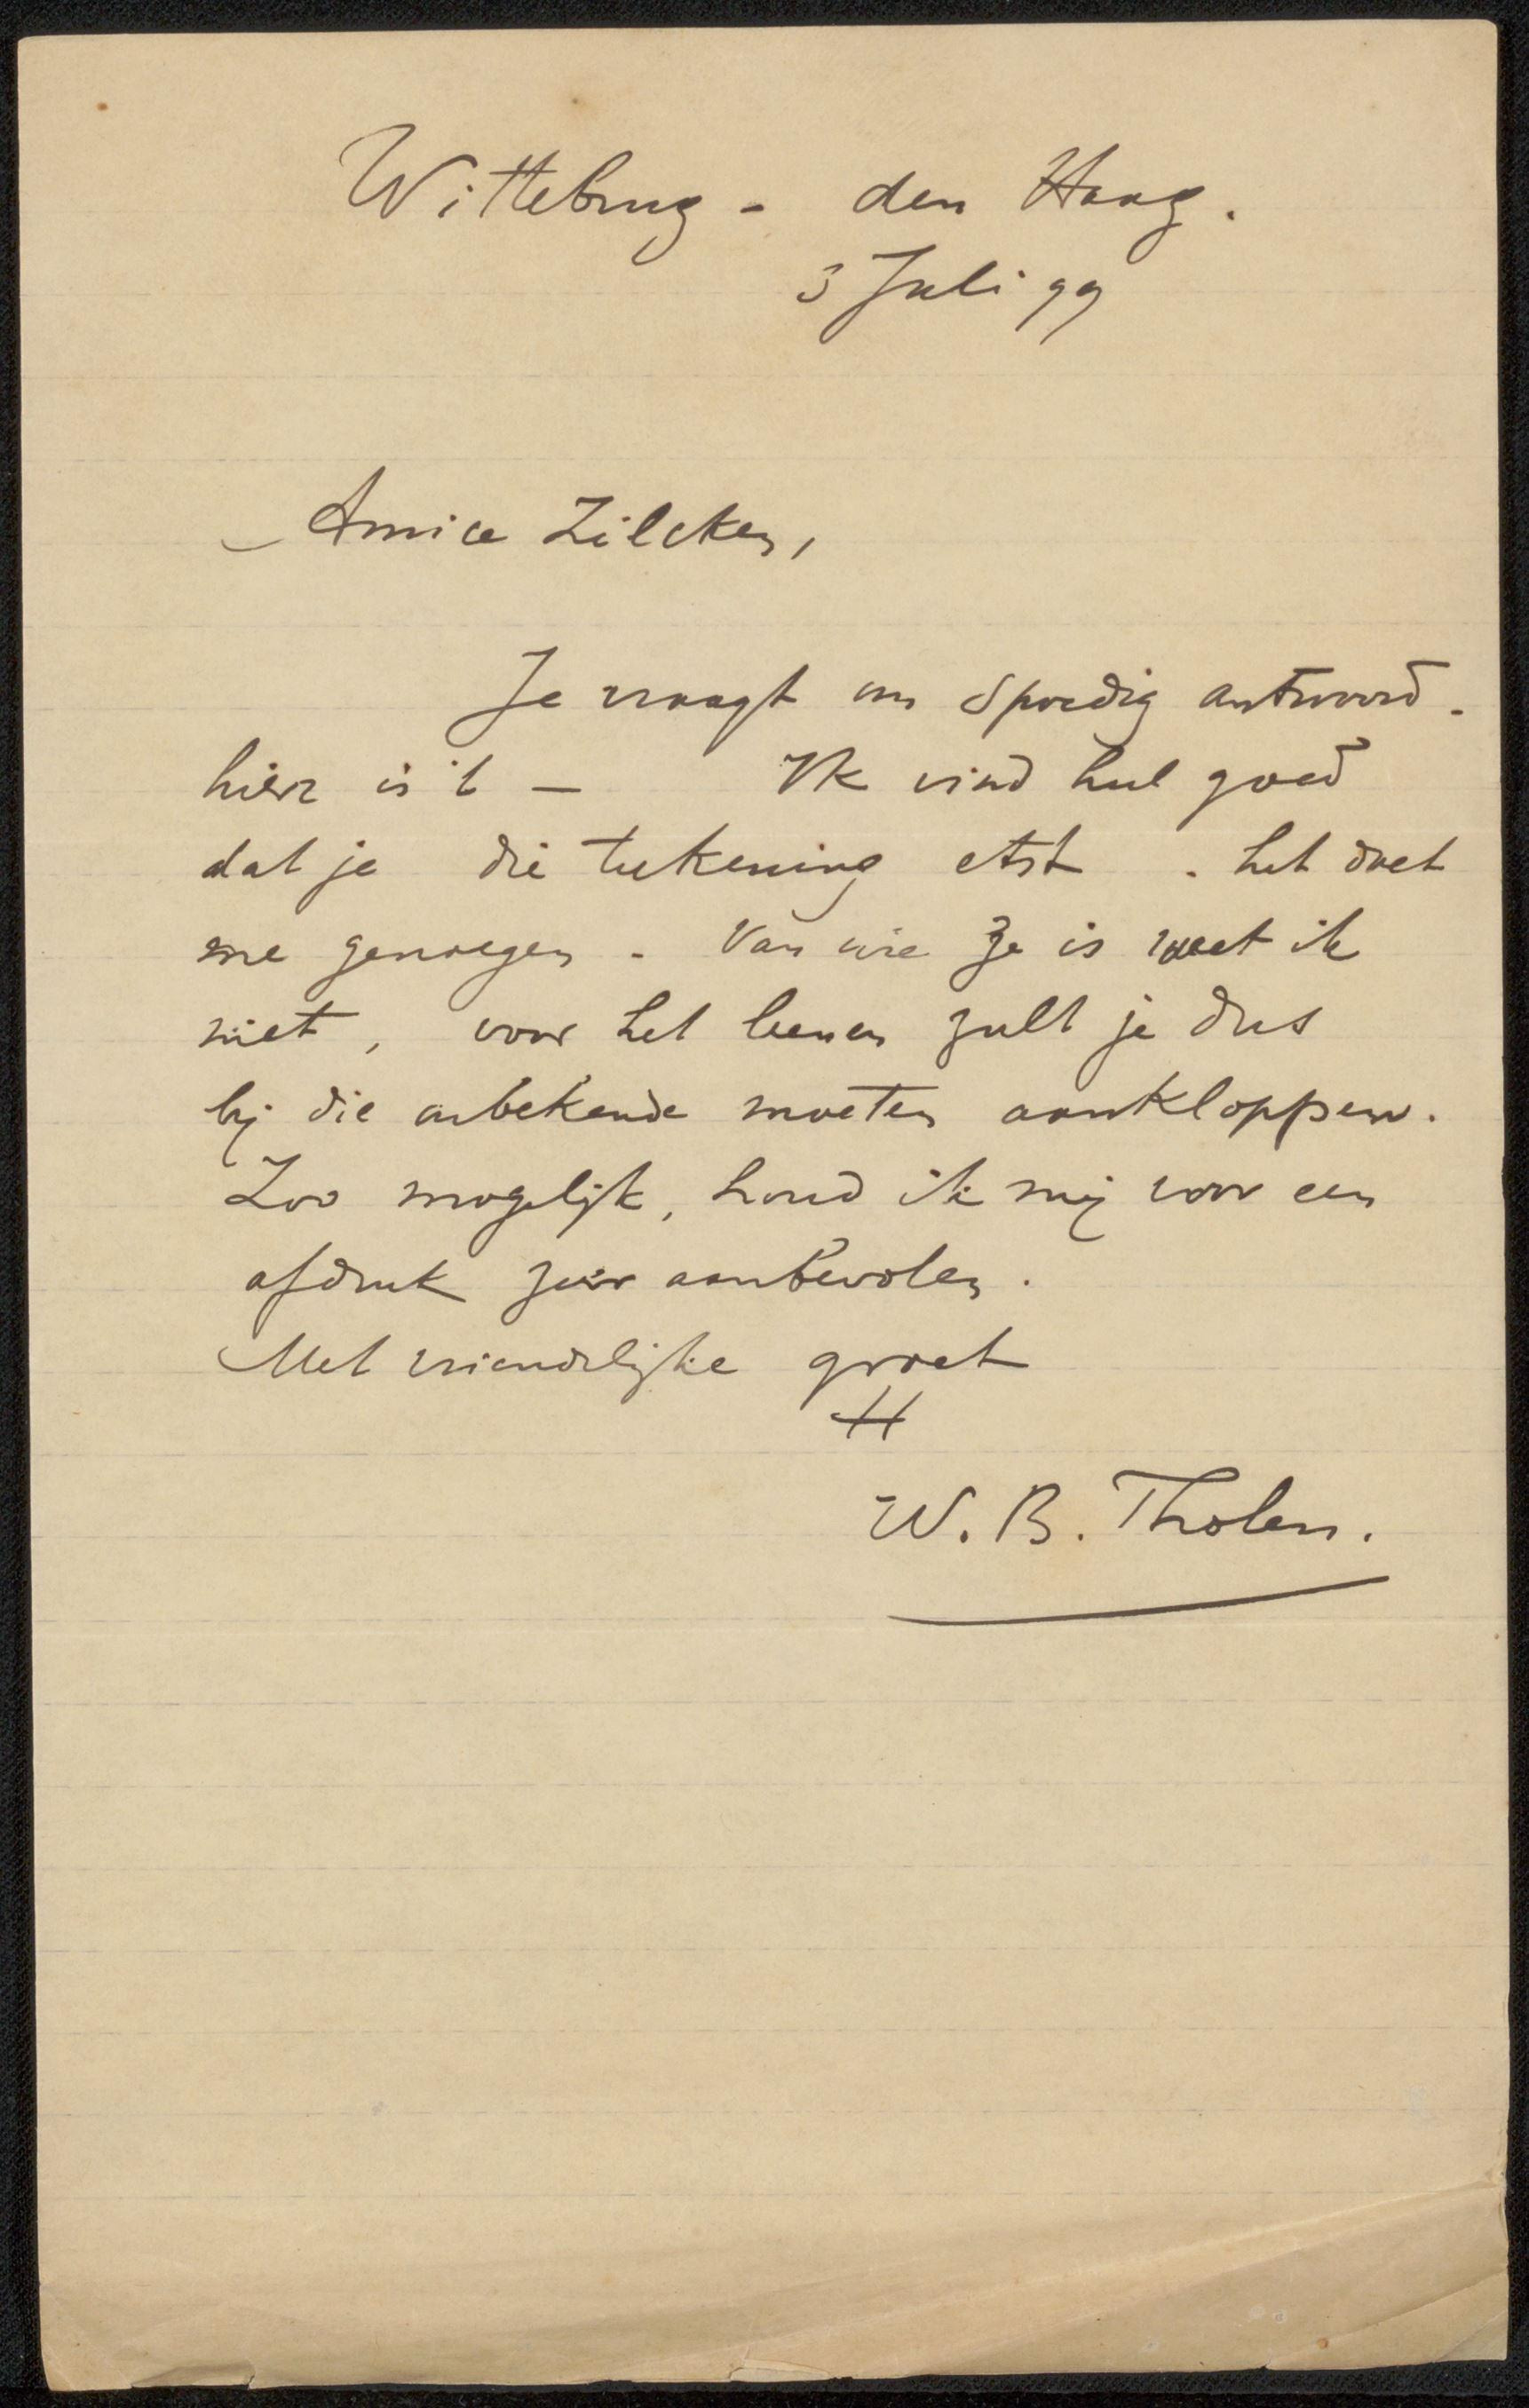 Wittebrug - den Haag.
3 Juli 99
Amice Zilcken,
Je vraagt om spoedig antwoord.
hier is 't — Ik vind heel goed
dat je die teekening etst. het doet
me genoegen. Van wie ze is weet ik
niet, voor het leenen zult je dus
bij die onbekende moeten aankloppen.
Zoo mogelijk, houd ik mij voor een
afdruk zeer aanbevolen.
Met vriendelijke groet
tt
W. B. Tholen.